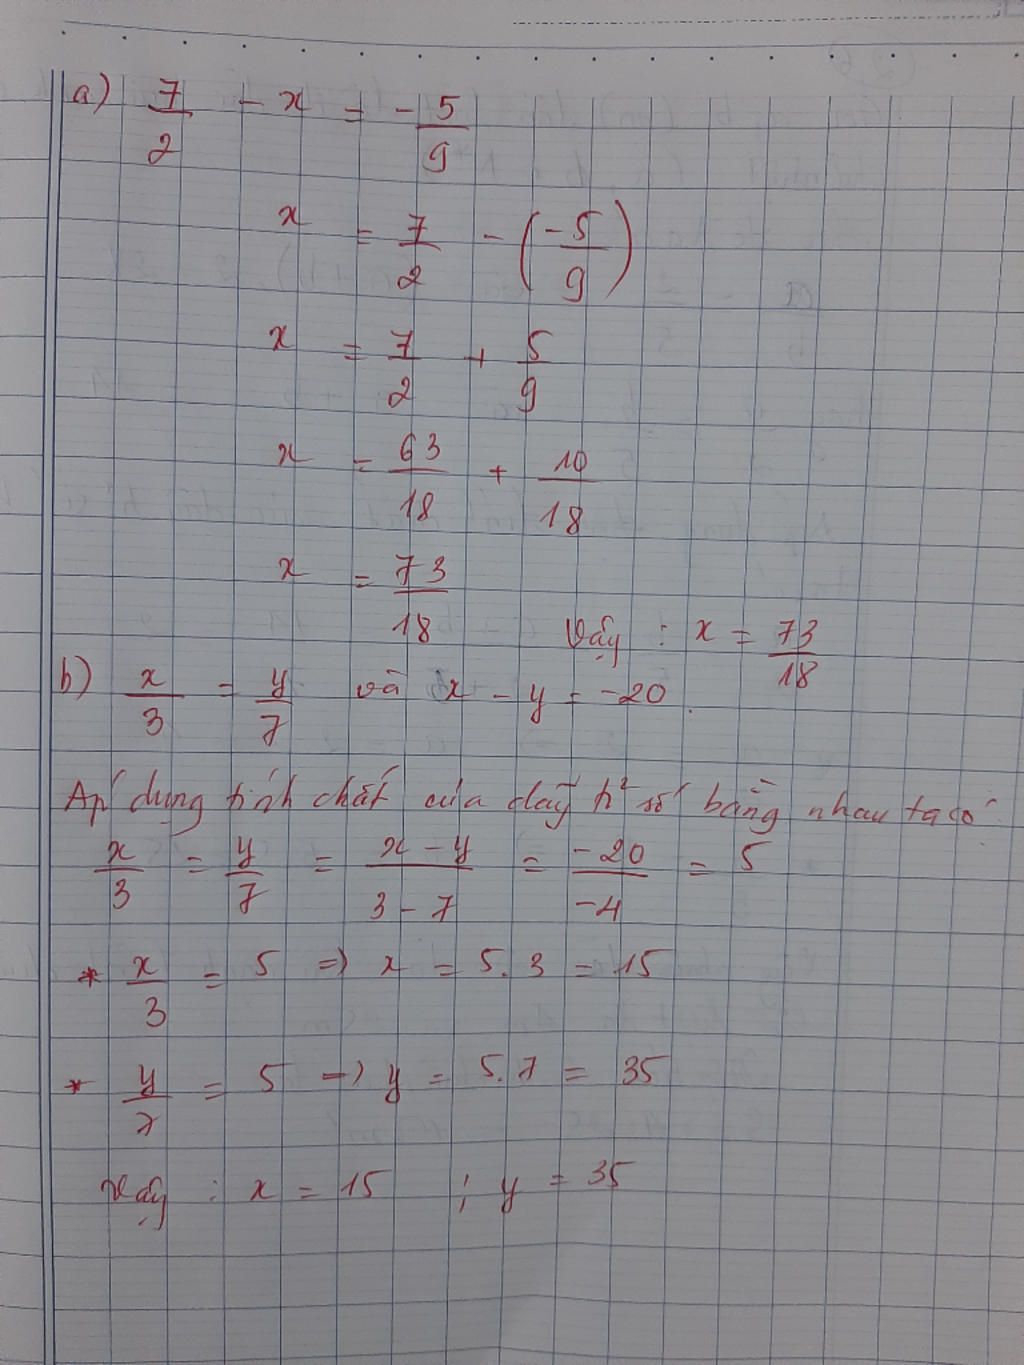 a) 7/2 - x = - 5/9
x = 7/2 - (-5/9)
x = 7/2 + 5/9
x = 63/18 + 10/18
x = 73/18
Vậy : x = 73/18
b) x/3 = y/7 và x - y = -20.
Áp dụng tính chất của dãy tỉ số bằng nhau ta có
x/3 = y/7 = x - y/3 - 7 = -20/-4 = 5
* x/3 = 5 => x = 5.3 = 15
* y/7 = 5 => y = 5.7 = 35
Vậy : x = 15 ; y = 35